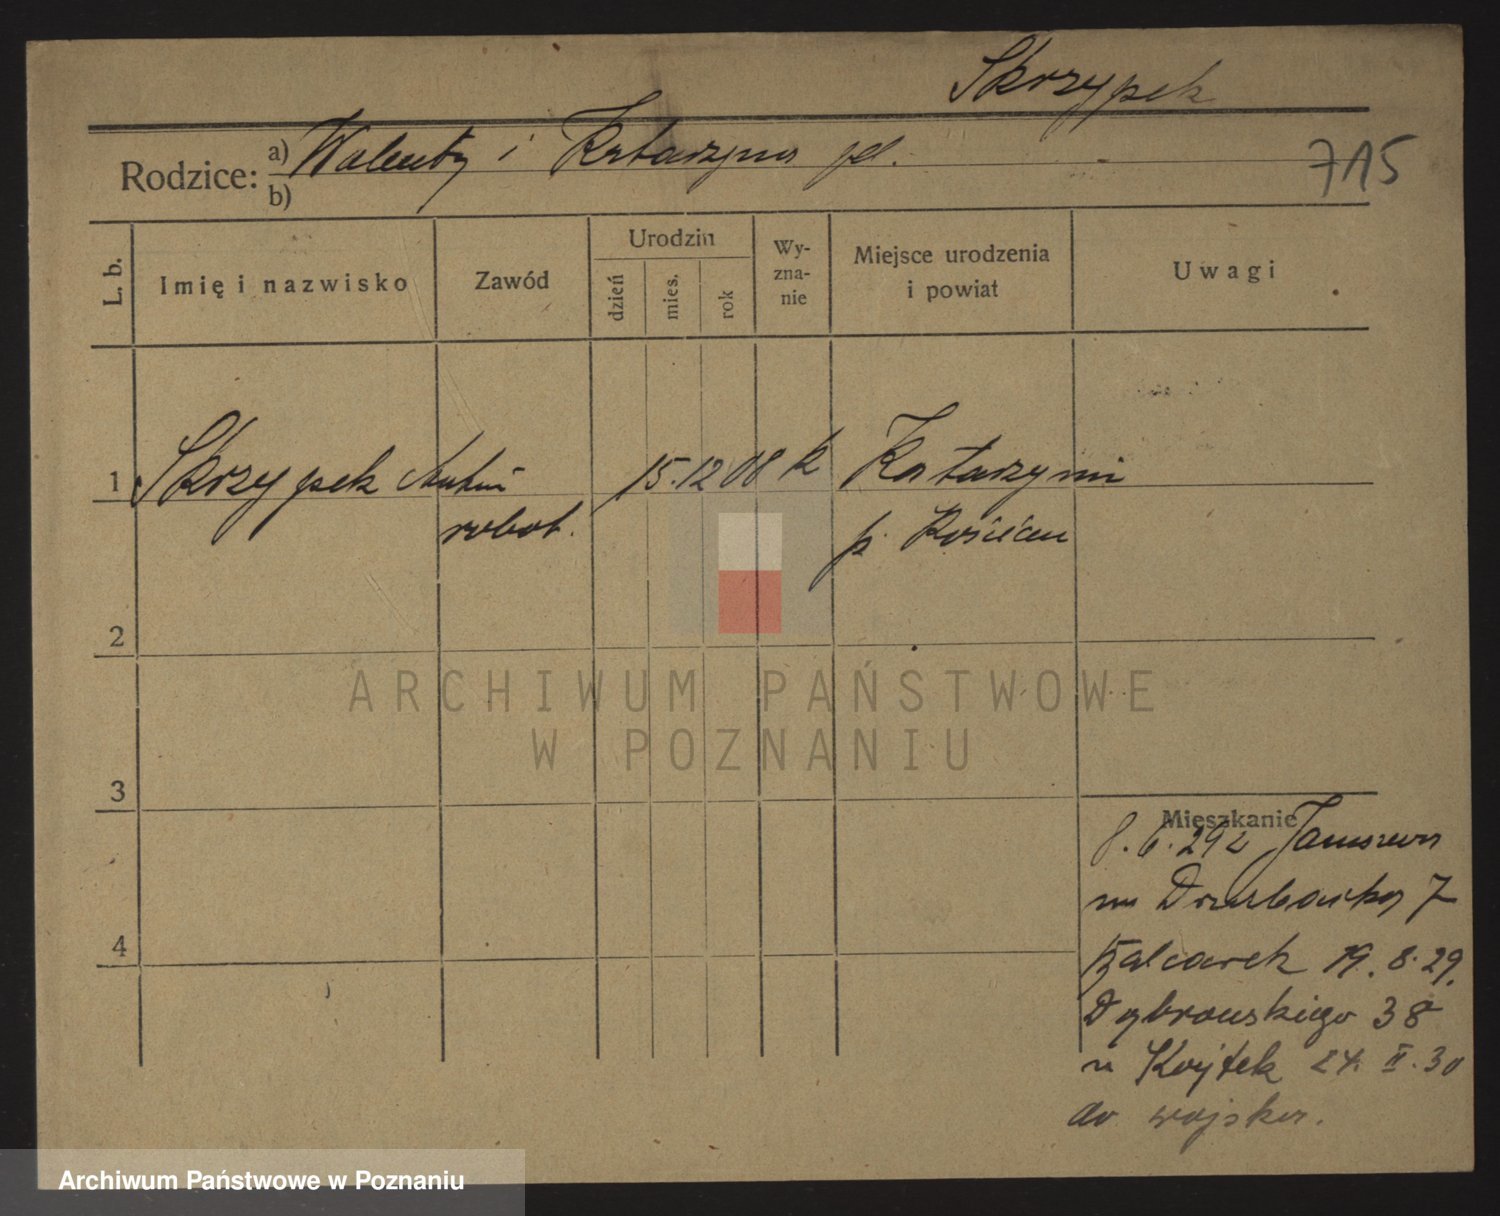 Skrzypek
Rodzice: a) Walenty i Katarzyna pl.
b)
715
L. b. Imię i nazwisko Zawód Urodzin Wyznanie Miejsce urodzenia i powiat Uwagi
dzień mies. rok
1 Skrzypek Antoni 15. 12 08 k Katarzynin
robot. p. Kościan
2
3
4
Mieszkanie
8. 6. 29 z Januszewa
7
Balcarek 19. 8. 29.
Dąbrowskiego 38
u Wojtek 24. II. 30
do wojska.
ARCHIWUM PAŃSTWOWE
W POZNANIU
Archiwum Państwowe w Poznaniu